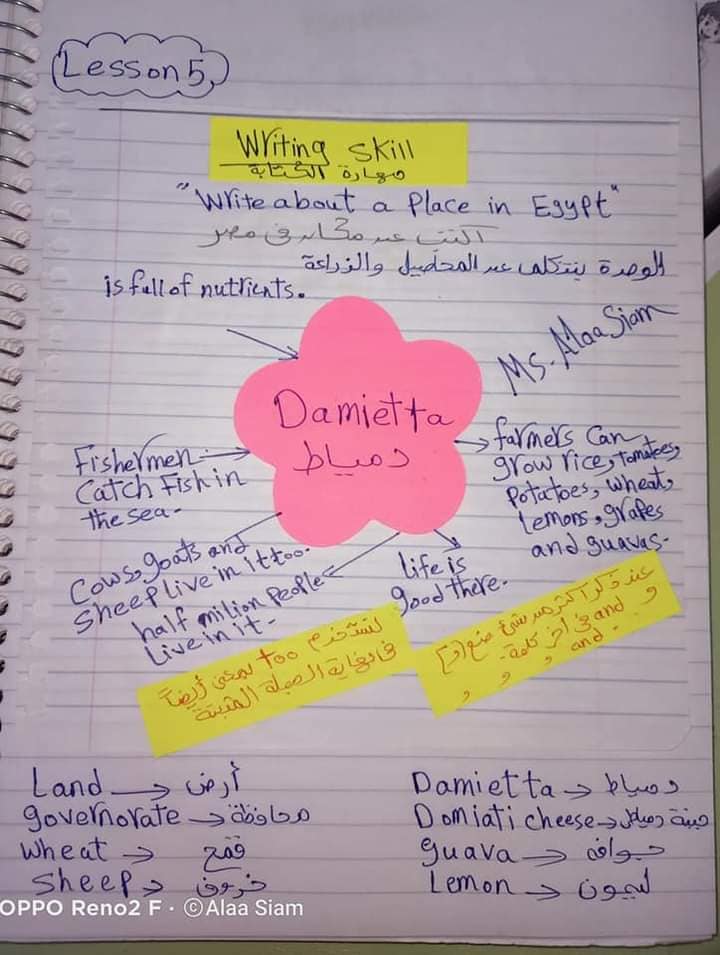 Lesson 5
Writing skill
مهارة الكتابة
"Write about a Place in Egypt"
اكتب عن مكان في مصر
الوحدة بتتكلم عن المحاصيل والزراعة
is full of nutrients.
Ms. Alaa Siam
Damietta
دمياط
Fishermen
Catch Fish in
the sea.
farmers can
grow rice, tomatoes,
Potatoes, wheat,
Lemons, grapes
and guavas.
Cows, goats and
sheep live in it too.
half milion People
Live in it.
life is
good there.
نستخدم too بمعنى أيضاً
في نهاية الجملة المثبتة
عند ذكر أكثر من شئ نضع (و)
and في آخر كلمة.
و and و و و
Land → أرض
governorate → محافظة
Wheat → قمح
Sheep → خروف
Damietta → دمياط
Domiati cheese → جبنة دمياطي
guava → جوافة
Lemon → ليمون
OPPO Reno2 F · ©Alaa Siam